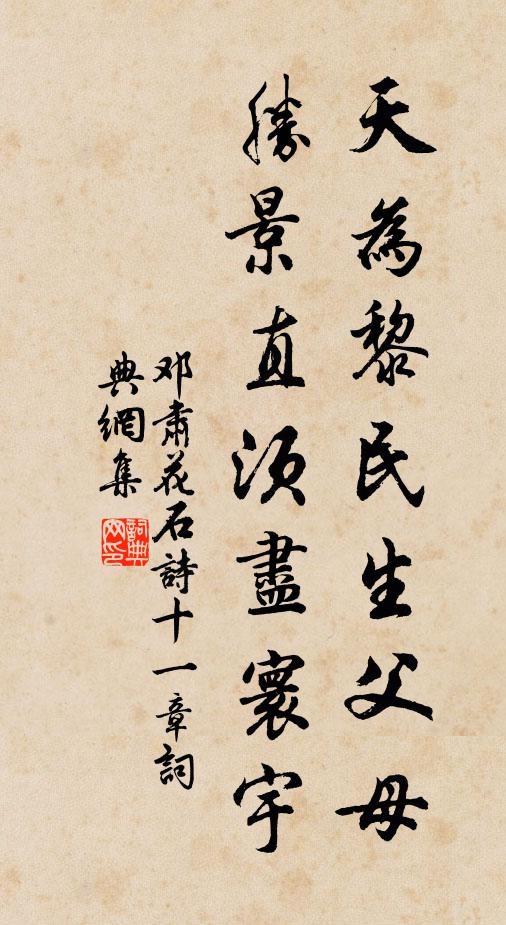 天為黎民生父母
勝景直須盡寰宇
邓肅花石詩十一章詞
典網集
詞典網印